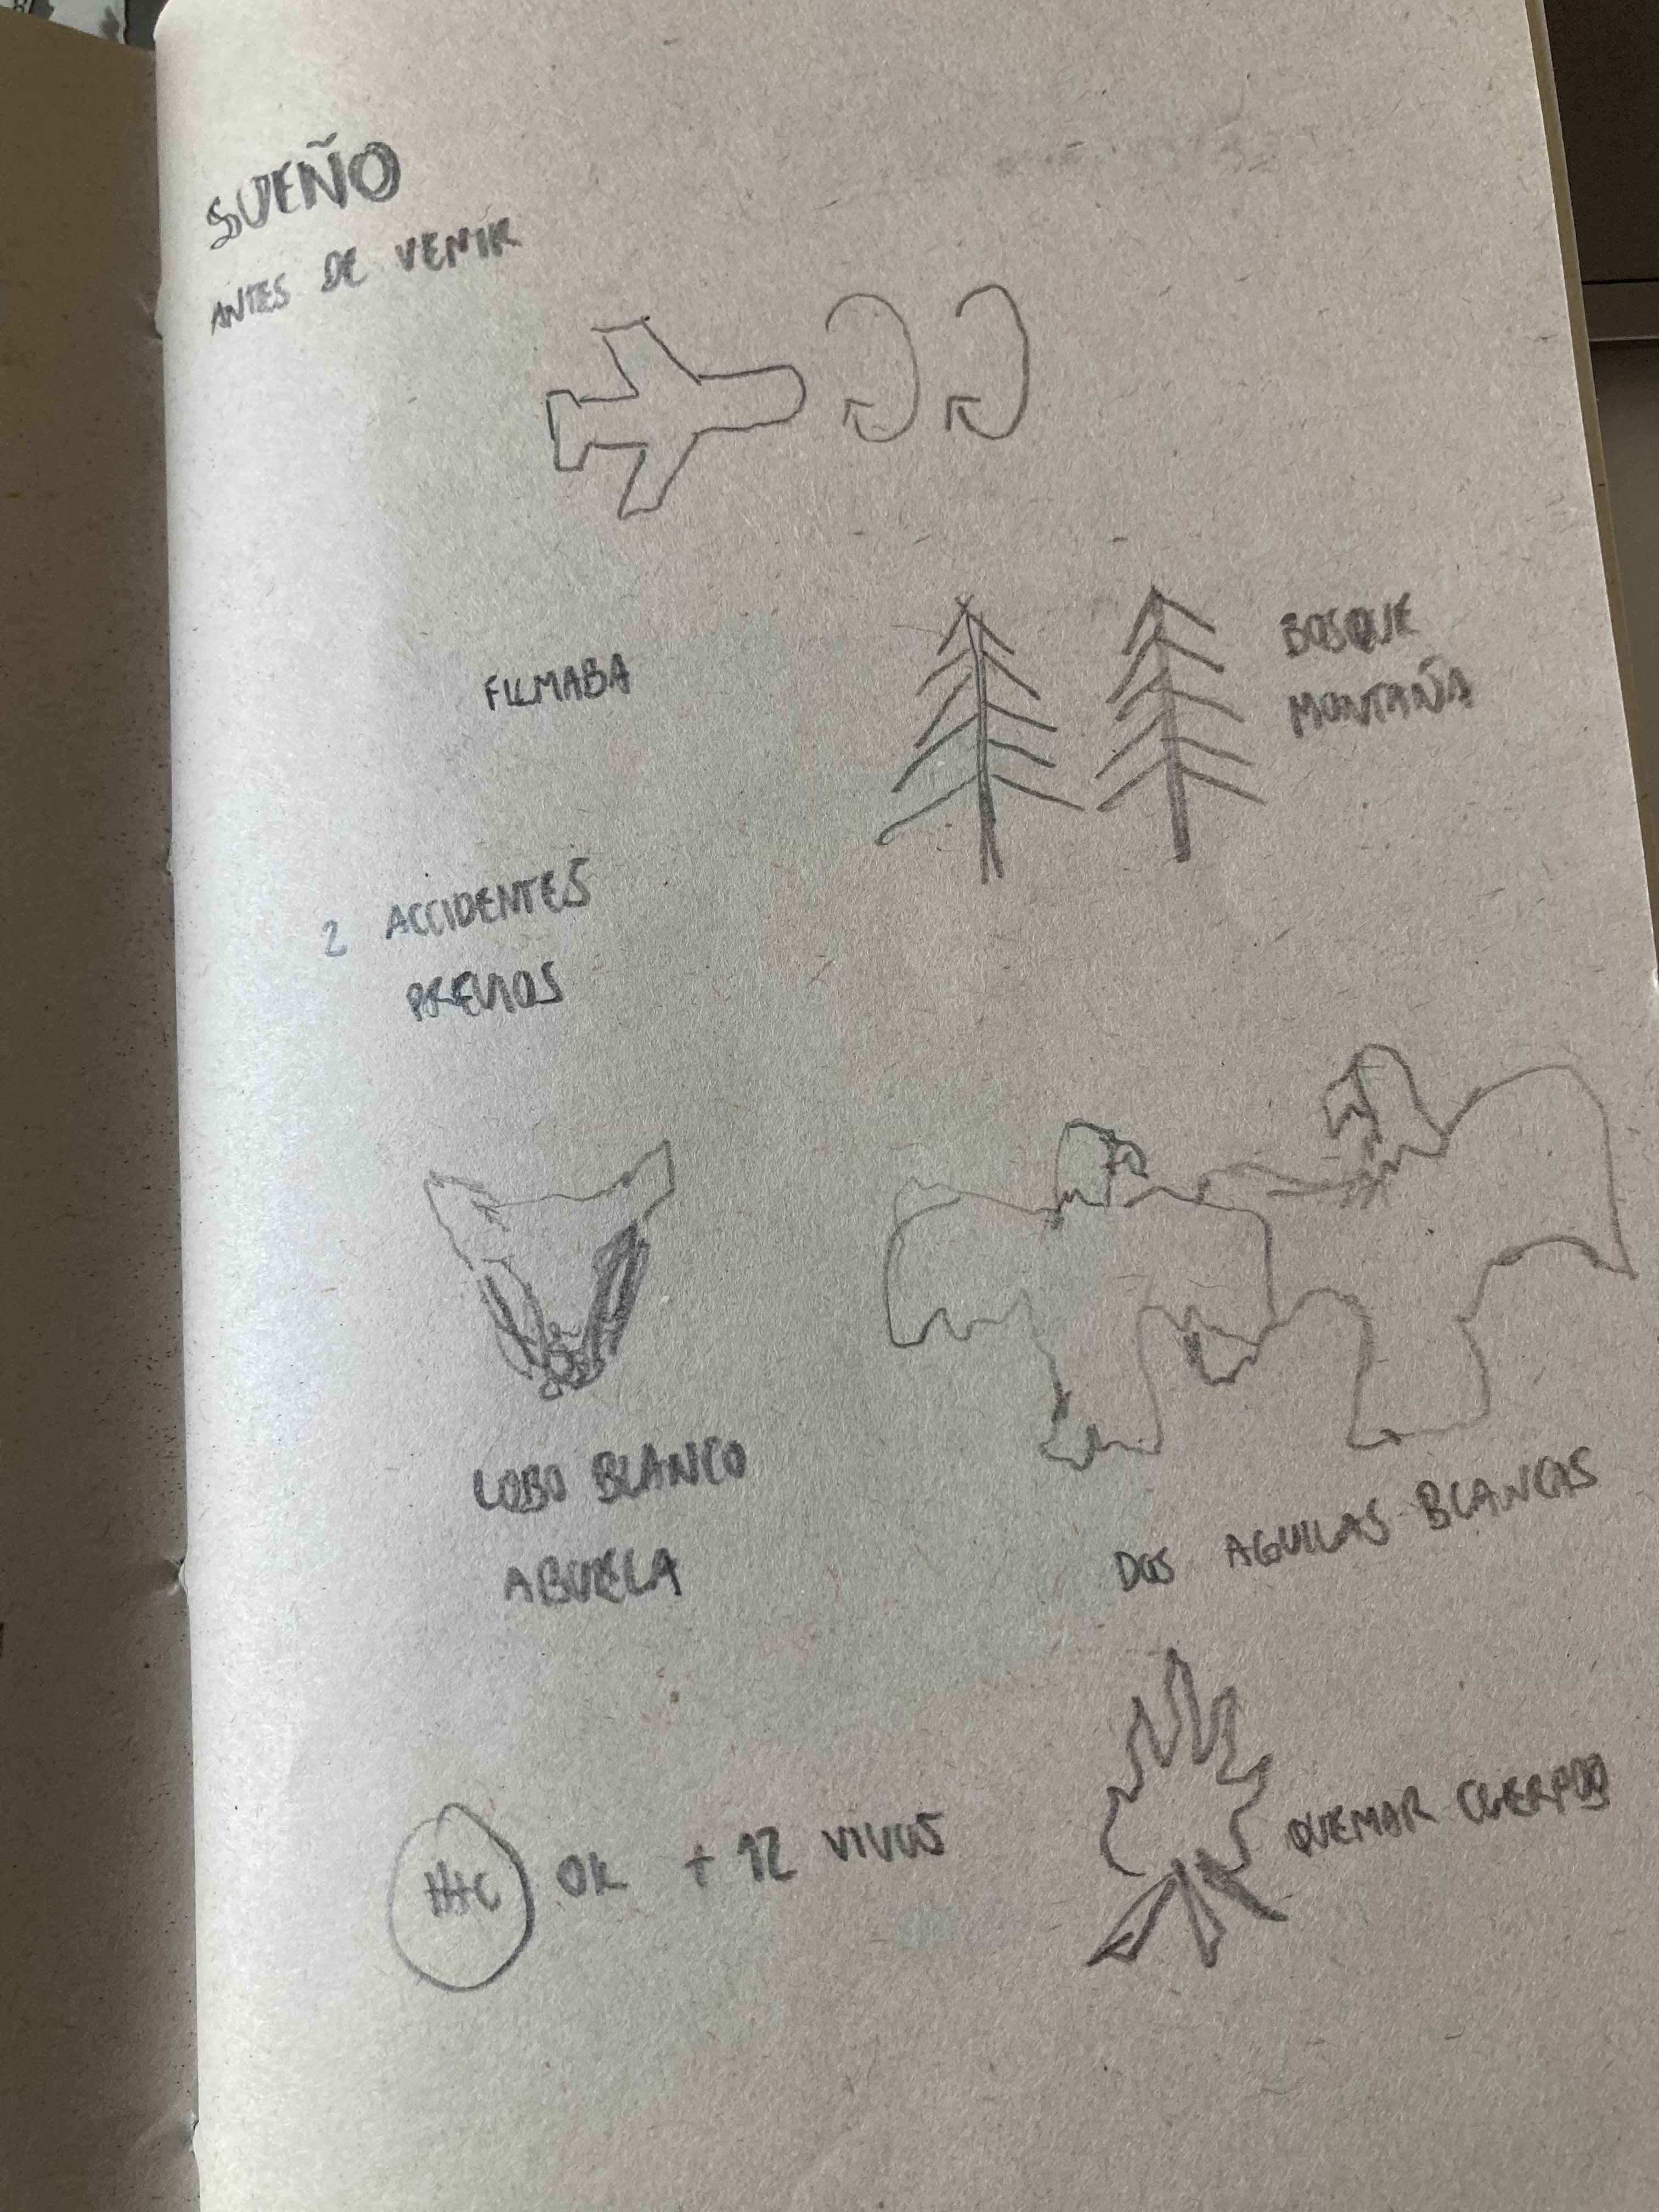 SUEÑO
ANTES DE VENIR
FILMABA
BOSQUE
MONTAÑA
2 ACCIDENTES
PREVIOS
LOBO BLANCO
ABUELA
DOS AGUILAS BLANCAS
OK + 12 VIVOS
QUEMAR CUERPOS